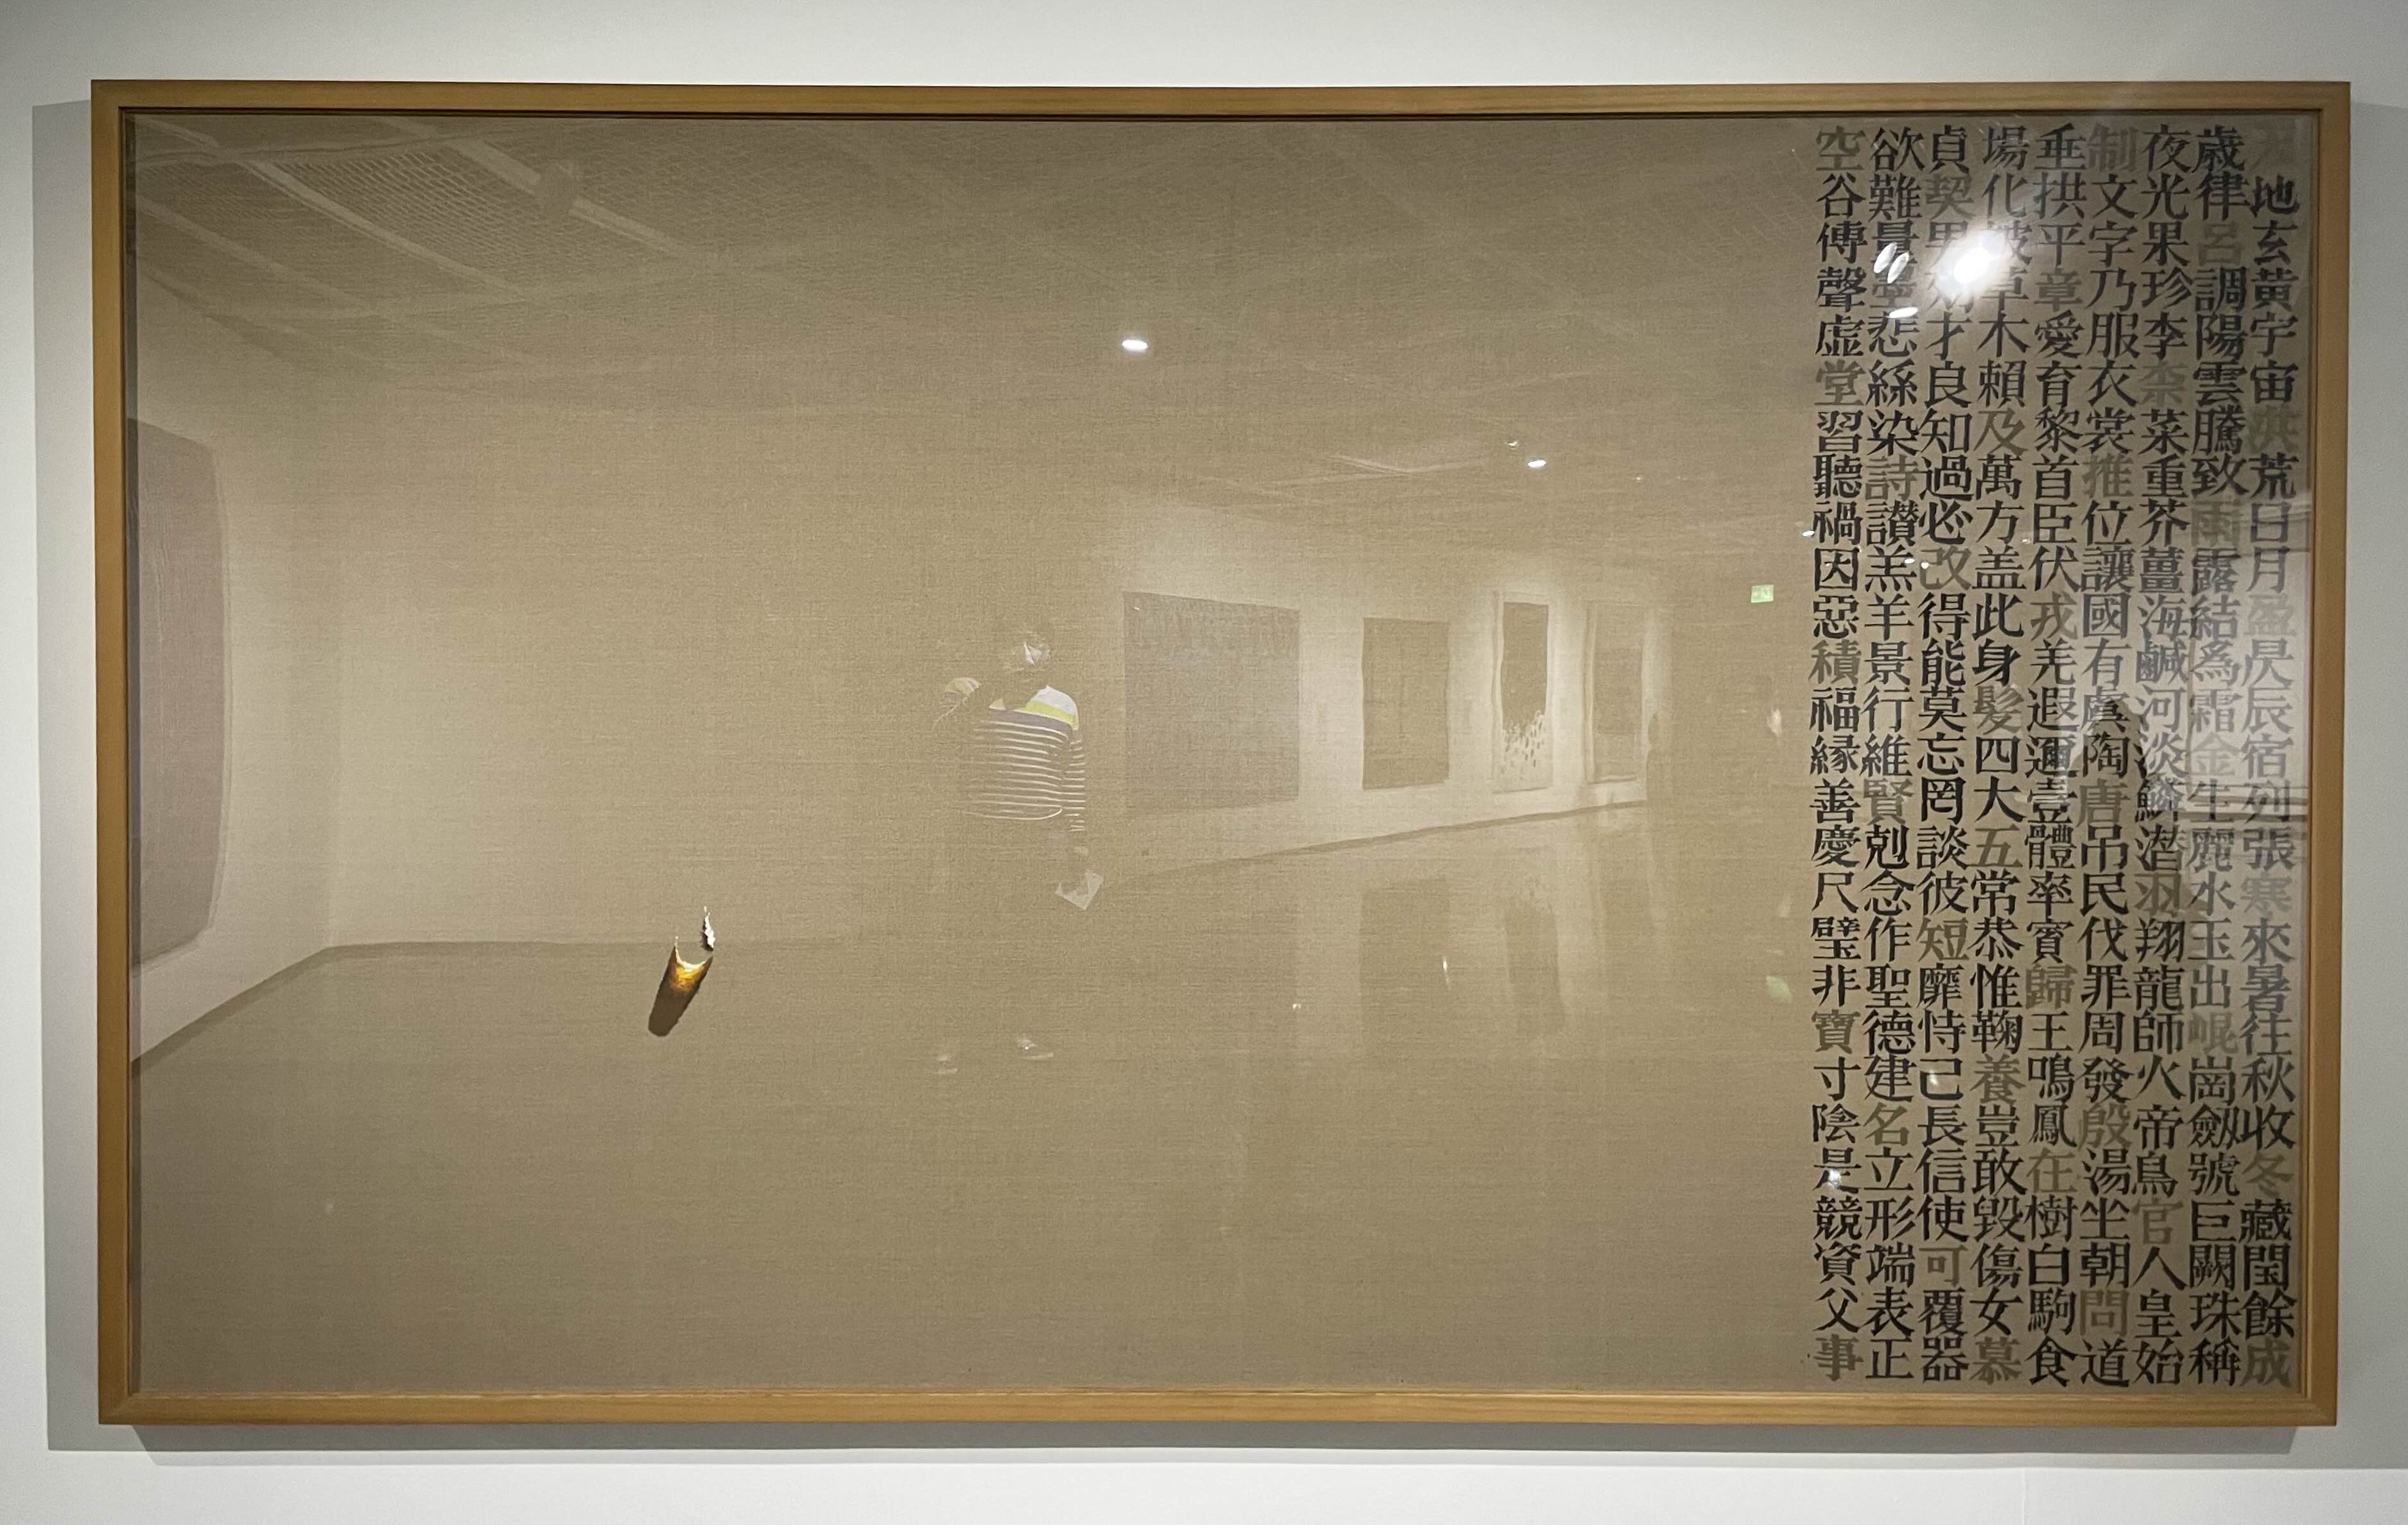 天地玄黄宇宙洪荒日月盈昃辰宿列張寒來暑往秋收冬藏閏餘成
歲律呂調陽雲騰致雨露結爲霜金生麗水玉出崐崗劒號巨闕珠稱
夜光果珍李柰菜重芥薑海鹹河淡鱗潛羽翔龍師火帝鳥官人皇始
制文字乃服衣裳推位讓國有虞陶唐吊民伐罪周發殷湯坐朝問道
垂拱平章愛育黎首臣伏戎羌遐邇壹體率賓歸王鳴鳳在樹白駒食
場化被草木賴及萬方盖此身髮四大五常恭惟鞠養豈敢毀傷女慕
貞契男效才良知過必改得能莫忘罔談彼短靡恃己長信使可覆器
欲難量墨悲絲染詩讃羔羊景行維賢剋念作聖德建名立形端表正
空谷傳聲虛堂習聽禍因惡積福緣善慶尺璧非寶寸陰是競資父事